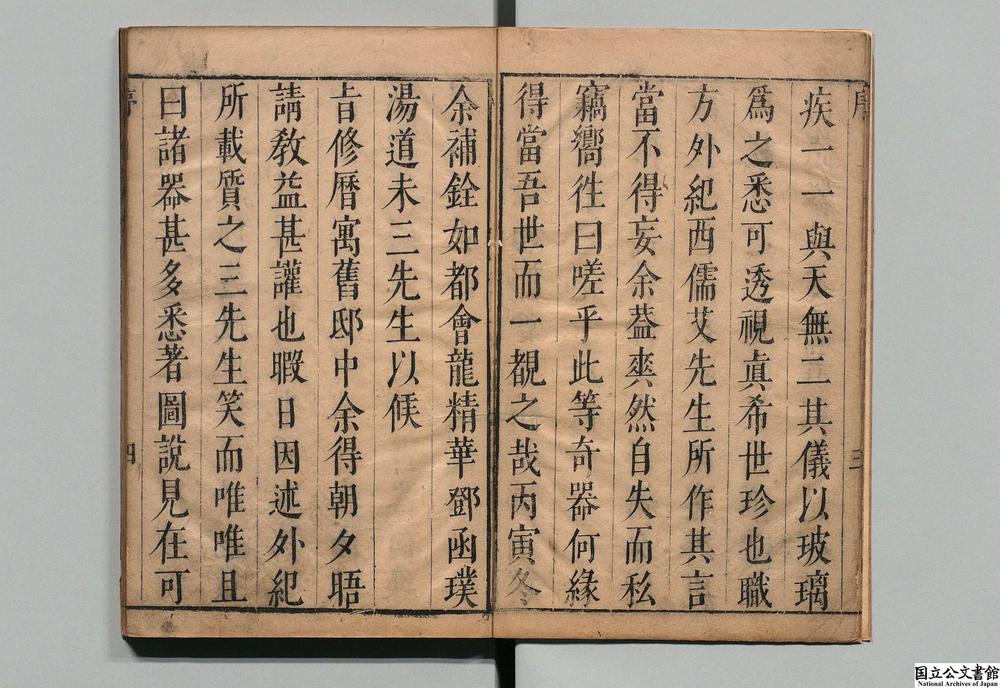 序
三
疾一一與天無二其儀以玻璃
爲之悉可透視真希世珍也職
方外紀西儒艾先生所作其言
當不得妄余葢爽然自失而私
竊嚮徃曰嗟乎此等奇器何緣
得當吾世而一覩之哉丙寅冬
余補銓如都會龍精華鄧函璞
湯道未三先生以候
旨修曆寓舊邸中余得朝夕晤
請教益甚讙也暇日因述外紀
所載質之三先生笑而唯唯且
曰諸器甚多悉著圖說見在可
序
四
国立公文書館
National Archives of Japan